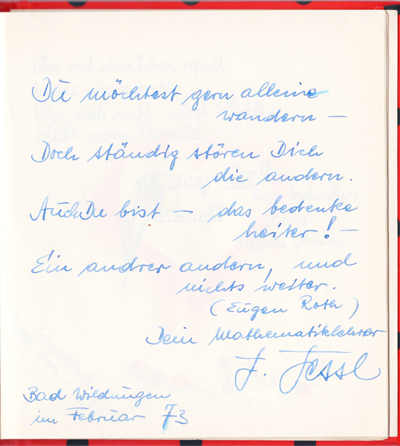 Du möchtest gern alleine
wandern –
Doch ständig stören Dich
die andern.
Auch Du bist – das bedenke
heiter! –
Ein andrer andern, und
nichts weiter.
(Eugen Roth)
Dein Mathematiklehrer
J. Jessl
Bad Wildungen
im Februar 73